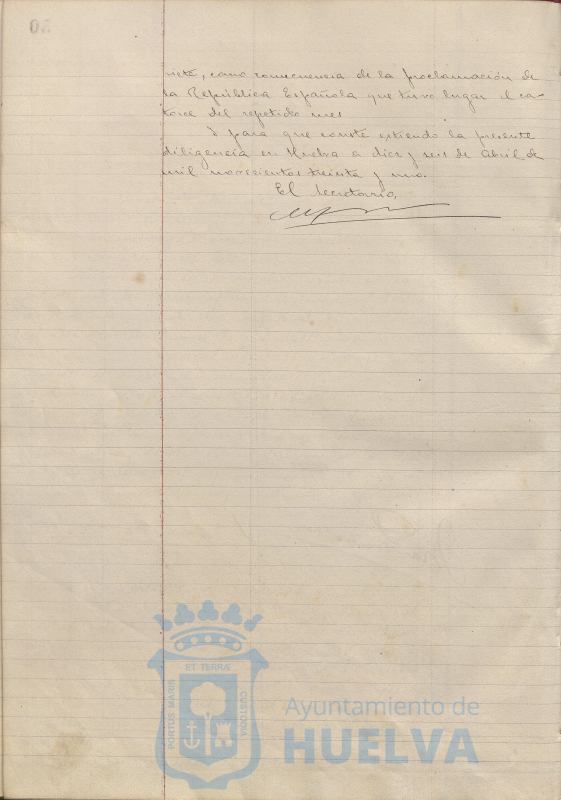 nieta, como consecuencia de la proclamación de
la República Española que tuvo lugar el ca-
torce del repetido mes
Y para que conste extiendo la presente
diligencia en Huelva a diez y seis de Abril de
mil novecientos treinta y uno.
El Secretario,
ET TERRÆ
PORTUS MARIS
CUSTODIA
Ayuntamiento de
HUELVA